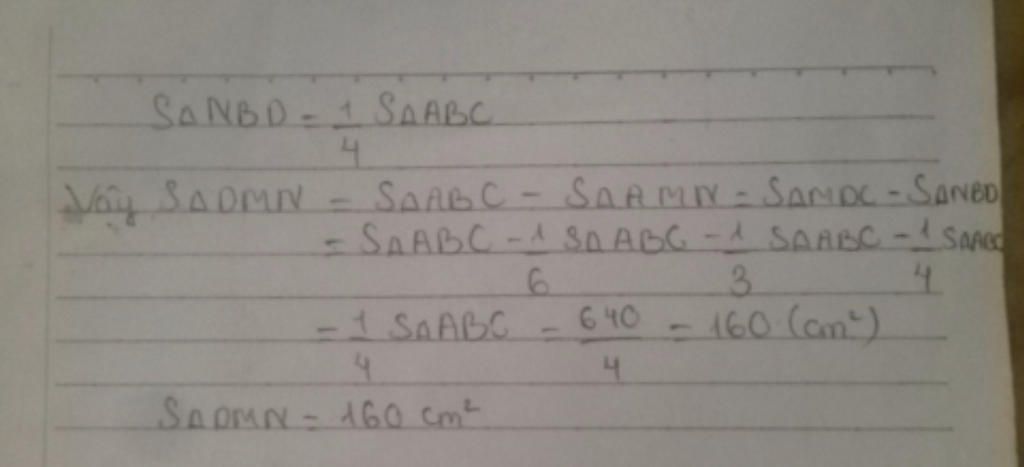 SΔNBD = 1/4 SΔABC
Vậy SΔDMN = SΔABC - SΔAMN = SΔMDC - SΔNBD
= SΔABC - 1/6 SΔABC - 1/3 SΔABC - 1/4 SΔABC
= 1/4 SΔABC = 640/4 = 160 (cm²)
SΔDMN = 160 cm²